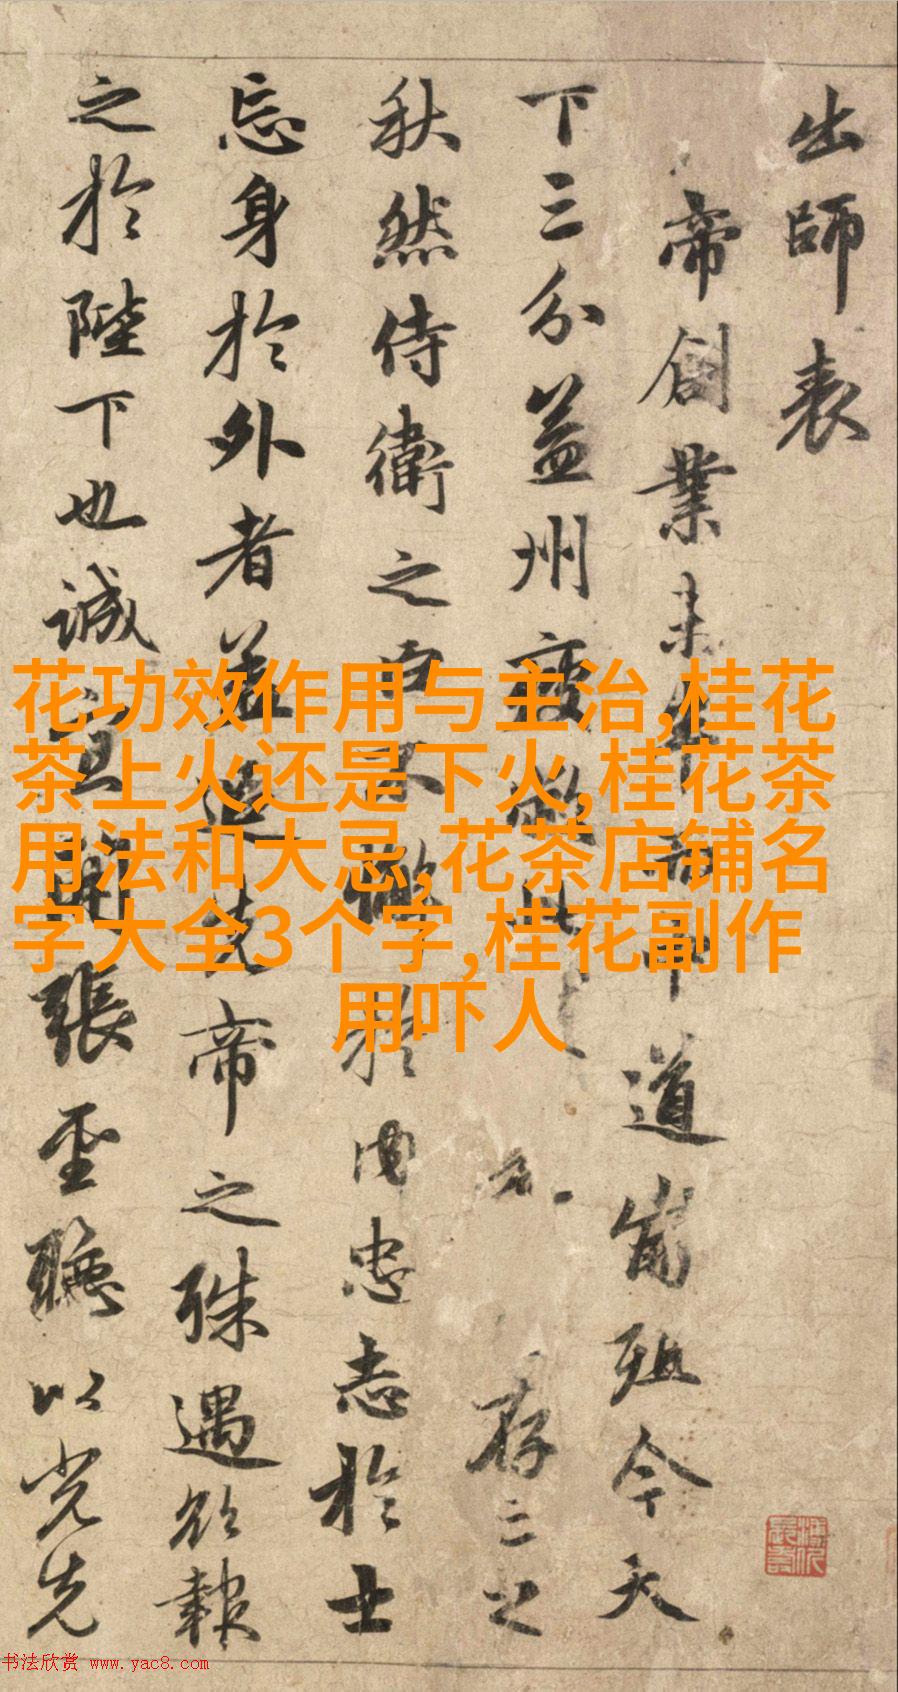 出師表
帝創業未半而中道崩殂今天
下三分益州疲敝此存之
秋然侍衛之臣不懈於內忠志於士
忘身於外者蓋追先帝之殊遇欲報
之於陛下也誠宜開張聖聽以光先
花功效作用与主治,桂花
茶上火还是下火,桂花茶
用法和大忌,花茶店铺名
字大全3个字,桂花副作
用吓人
书法欣赏 www.yac8.com